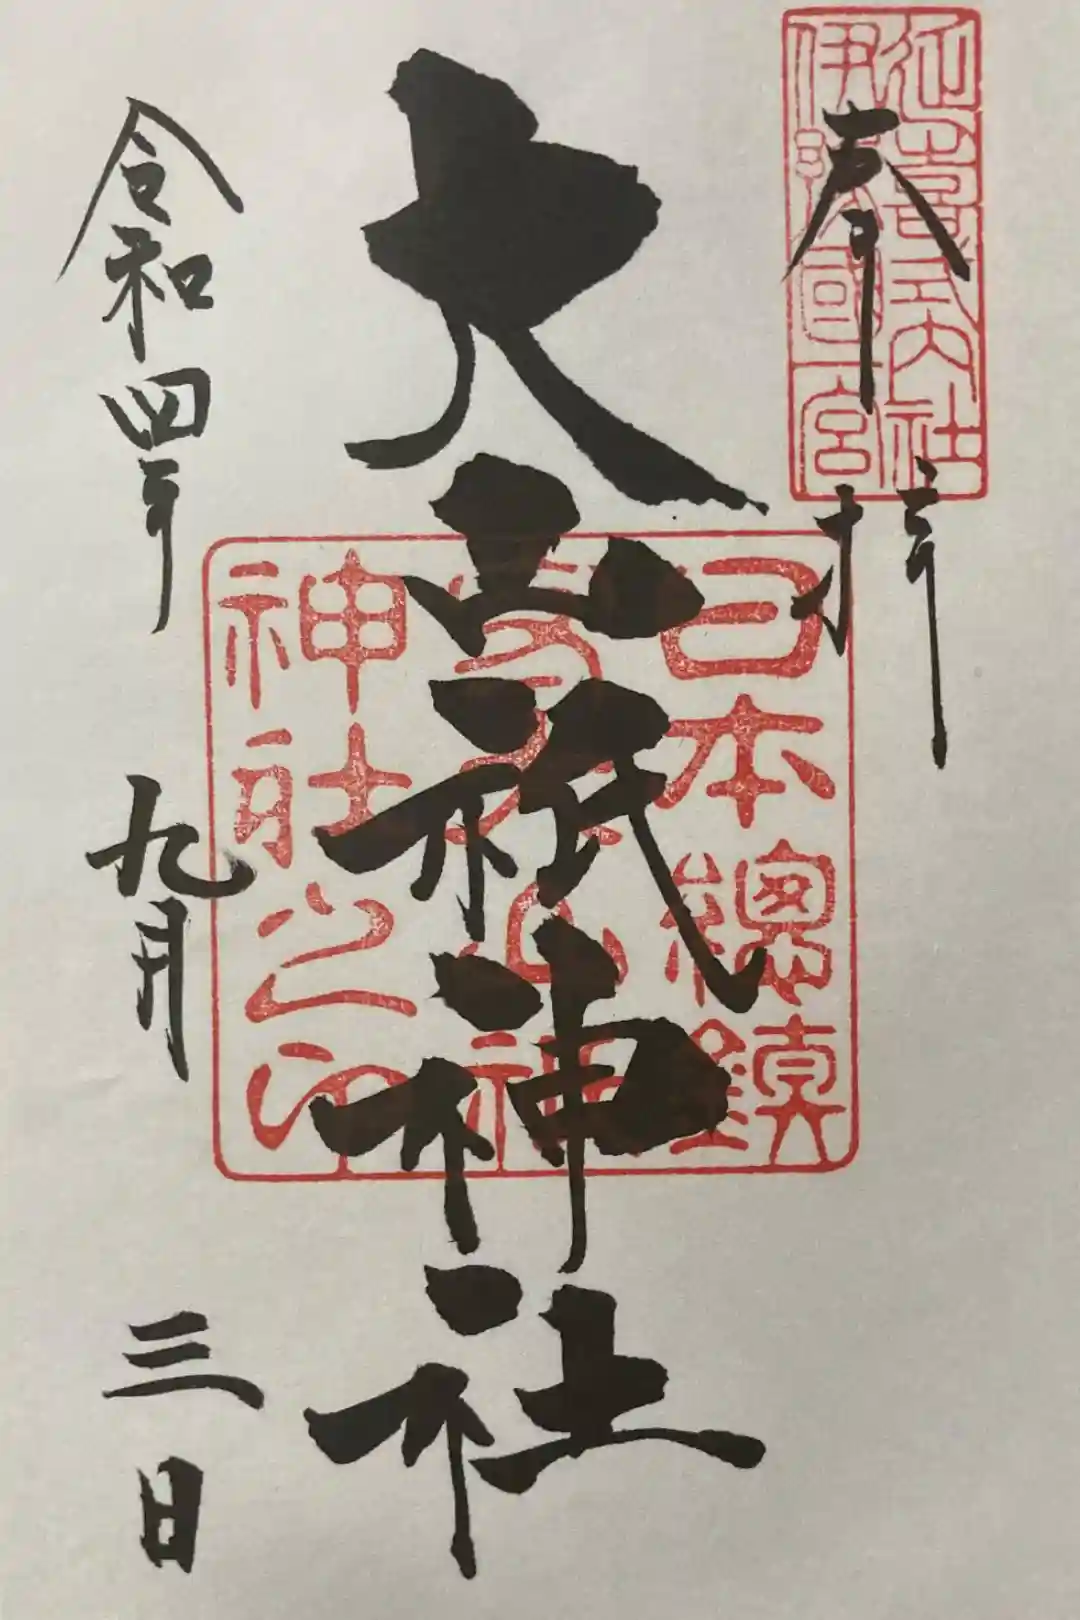 奉拝
延喜式内社
伊豫國一宮
大山祇神社
日本總鎮
守大山祇
神社之印
令和四年九月三日